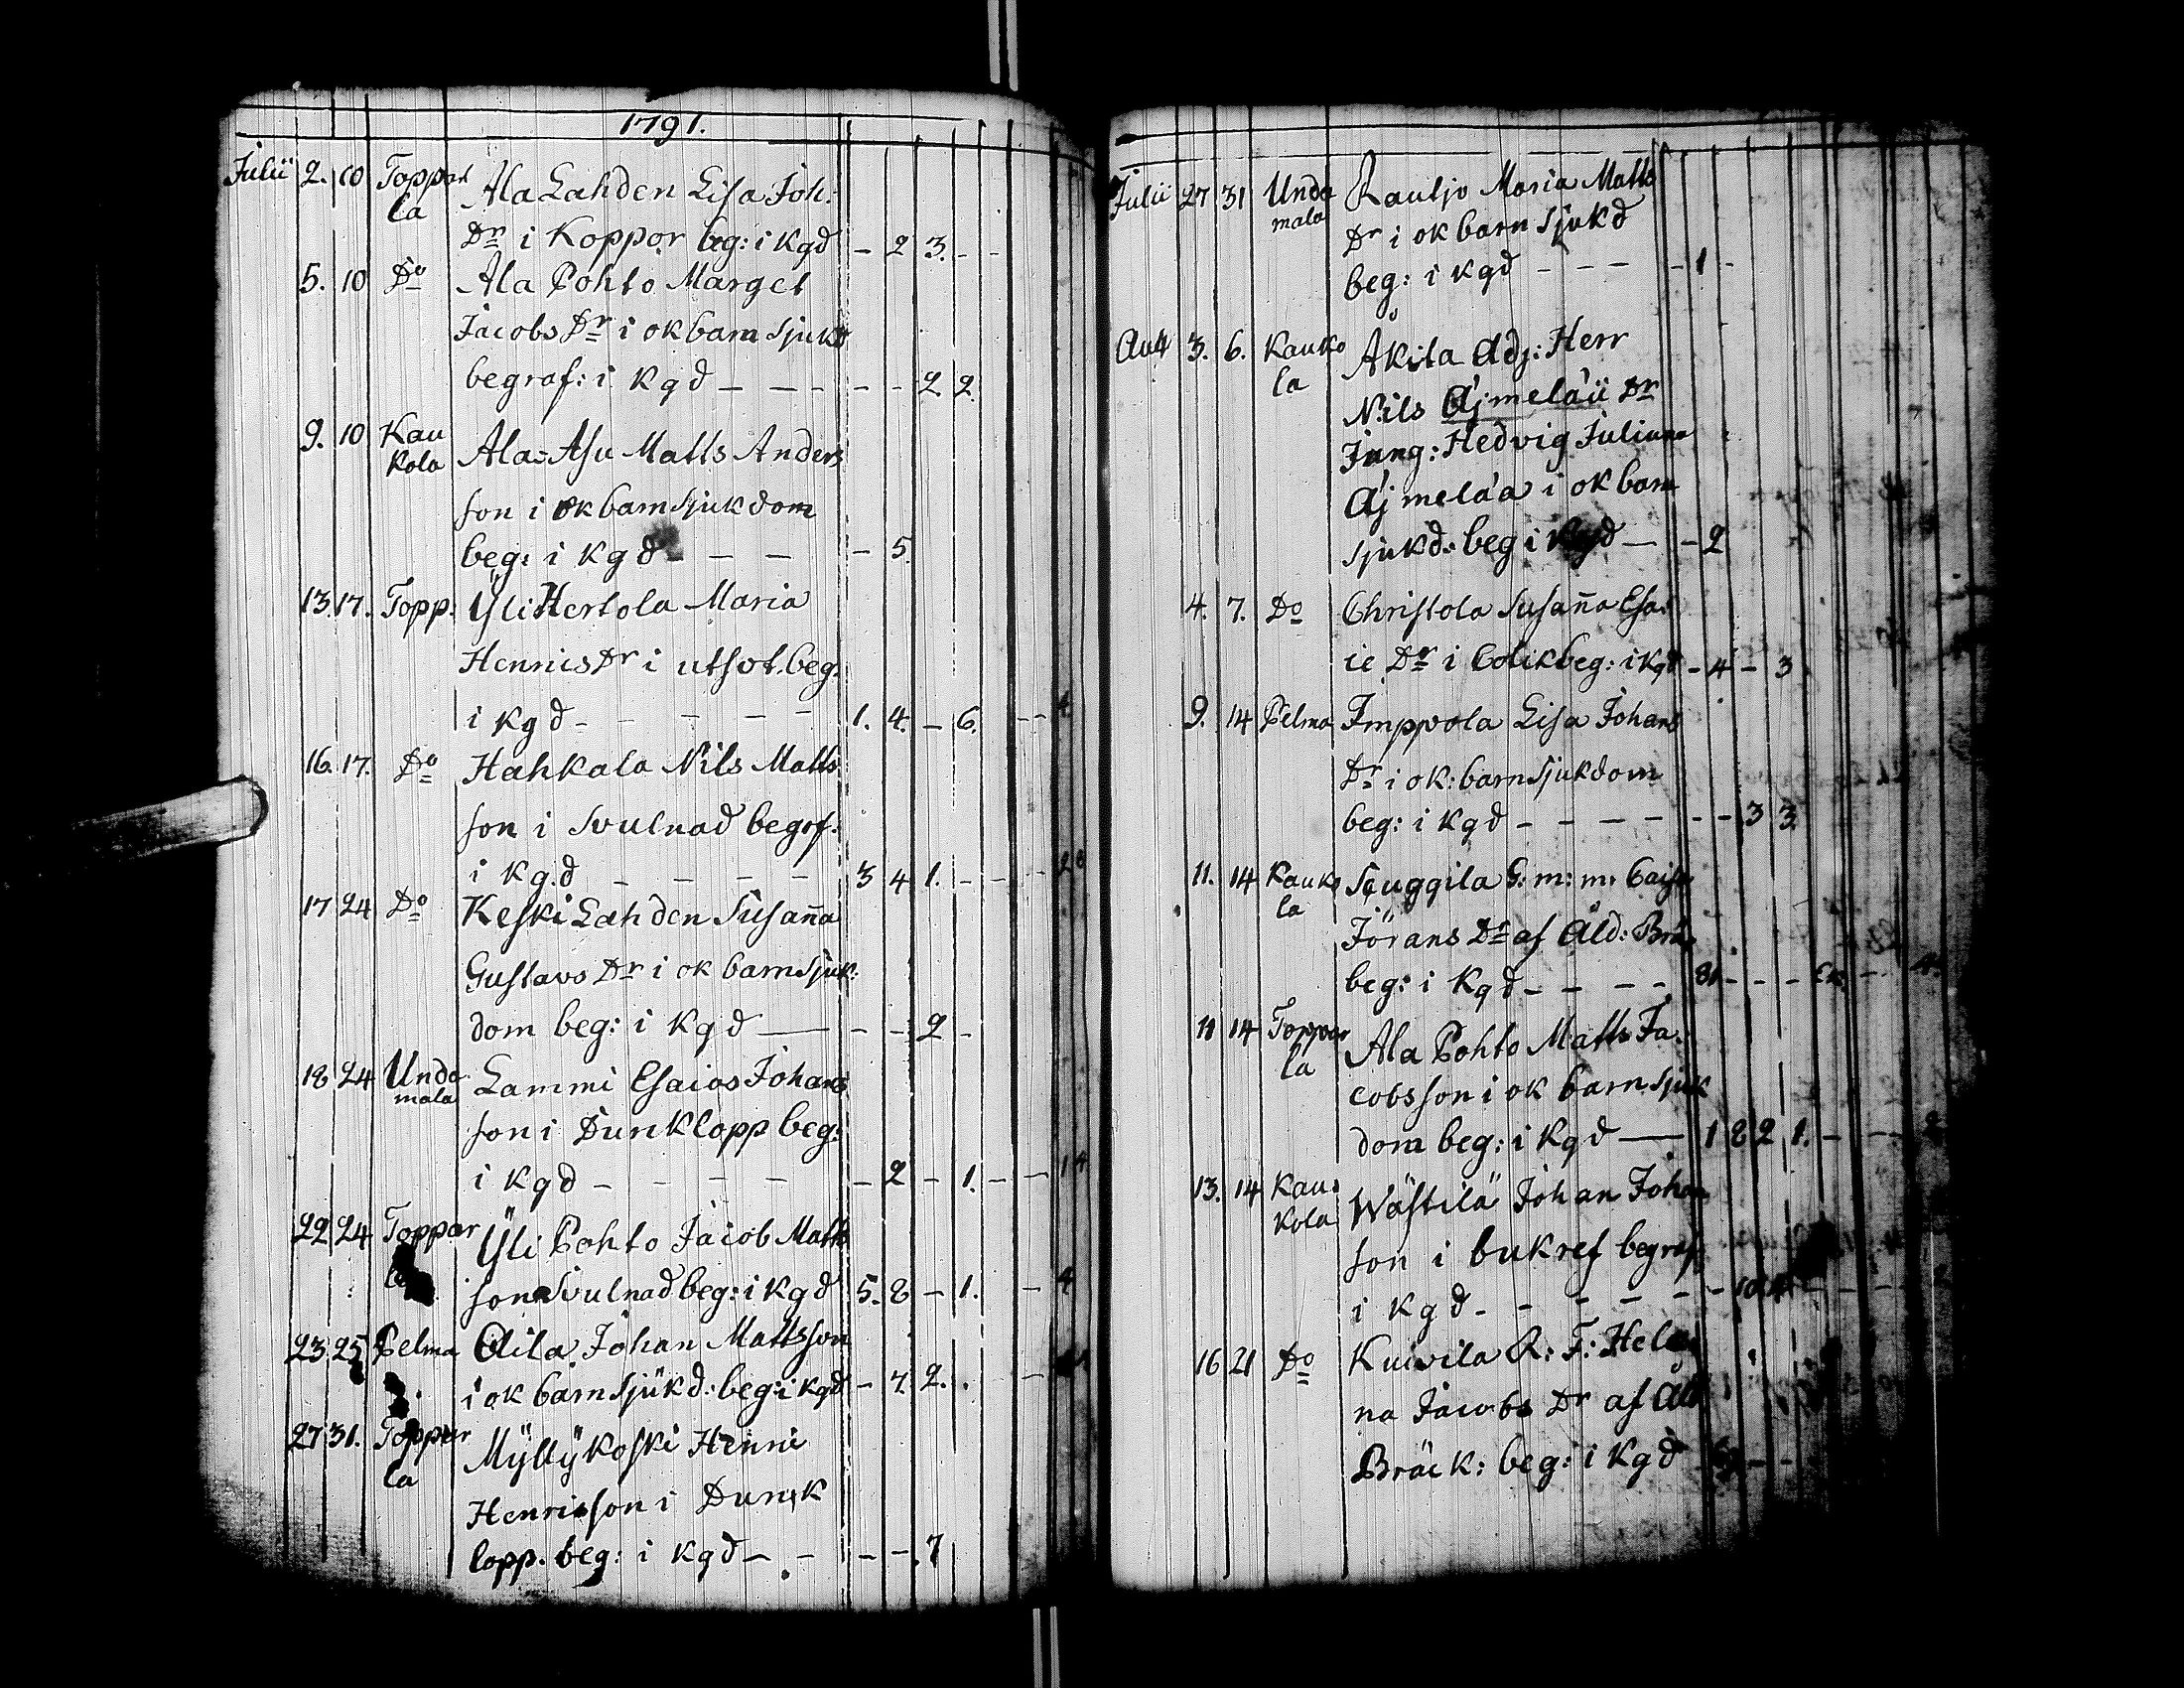 1791.
Julii 2. 10 Toppar Ala Lahden Lisa Joh:
la Dr i Koppor beg: i Kgd - 2 3. - -
5. 10 Do Ala Pohto Marget
Jacobs Dr i ok barn sjukd
begraf: i Kgd - - - - - 2 2.
9. 10 Kau Ala-Asu Matts Anders
kola son i ok barnsjukdom
beg: i Kgd - - - - 5.
13. 17. Topp. Yli Hertola Maria
Hennics Dr i utsot. beg:
i Kgd - - - - - 1. 4. - 6. - - 4.
16. 17. Do Hahkala Nils Matts
son i Svulnad begrf:
i Kg.d - - - - 3 4 1. - - -
17 24 Do Keski Lahden Susanna
Gustavs Dr i ok barnsjuk:
dom beg: i Kgd - - - 2 -
18 24 Unda Lammi Esaias Johans
mala son i Dunklopp beg:
i Kgd - - - - - 2 - 1. - - 14
22 24 Toppar Yli Pohto Jacob Matts
la son Svulnad beg: i Kgd 5. 8 - 1. - 4
23 25 Pelma Aila Johan Mattsson
i ok barnsjukd: beg: i Kgd - 7. 2. . -
27 31. Toppar Myllykoski Henric
la Henricsson i Dunk
lopp. beg: i Kgd - - - - . 7
Julii 27 31 Unda Rautjo Maria Matts
mala Dr i ok barn sjukd
beg: i Kgd - - - - 1 -
3. 6. Kauko Akila Adj: Herr
la Nils Ajmeläii Dr
Jung: Hedvig Juliana
Ajmeläa i ok barn
sjukd: beg i Kgd - - 2
4. 7. Do Christola Susanna Esa:
ie Dr i Colik beg: i Kgd - 4 - 3
9. 14 Pelma Imppola Lisa Johans
Dr i ok: barnsjukdom
beg: i Kgd - - - - - - 3 3
11. 14 Kauko G: m: m:
la Jörans Dr af Åld: Brä
beg: i Kgd - - - - 81 - - -
11 14 Toppar Ala Pohto Matts Ja:
la cobsson i ok barnsjuk
dom beg: i Kgd - 1 8 2 1. - - -
13. 14 Kau: Wästilä Johan Johan
kola son i bukref begraf:
i Kgd - - - - - -
16 21 Do Kuivila R: F: Hele
na Jacobs Dr af Åld
Bräck: beg: i Kgd